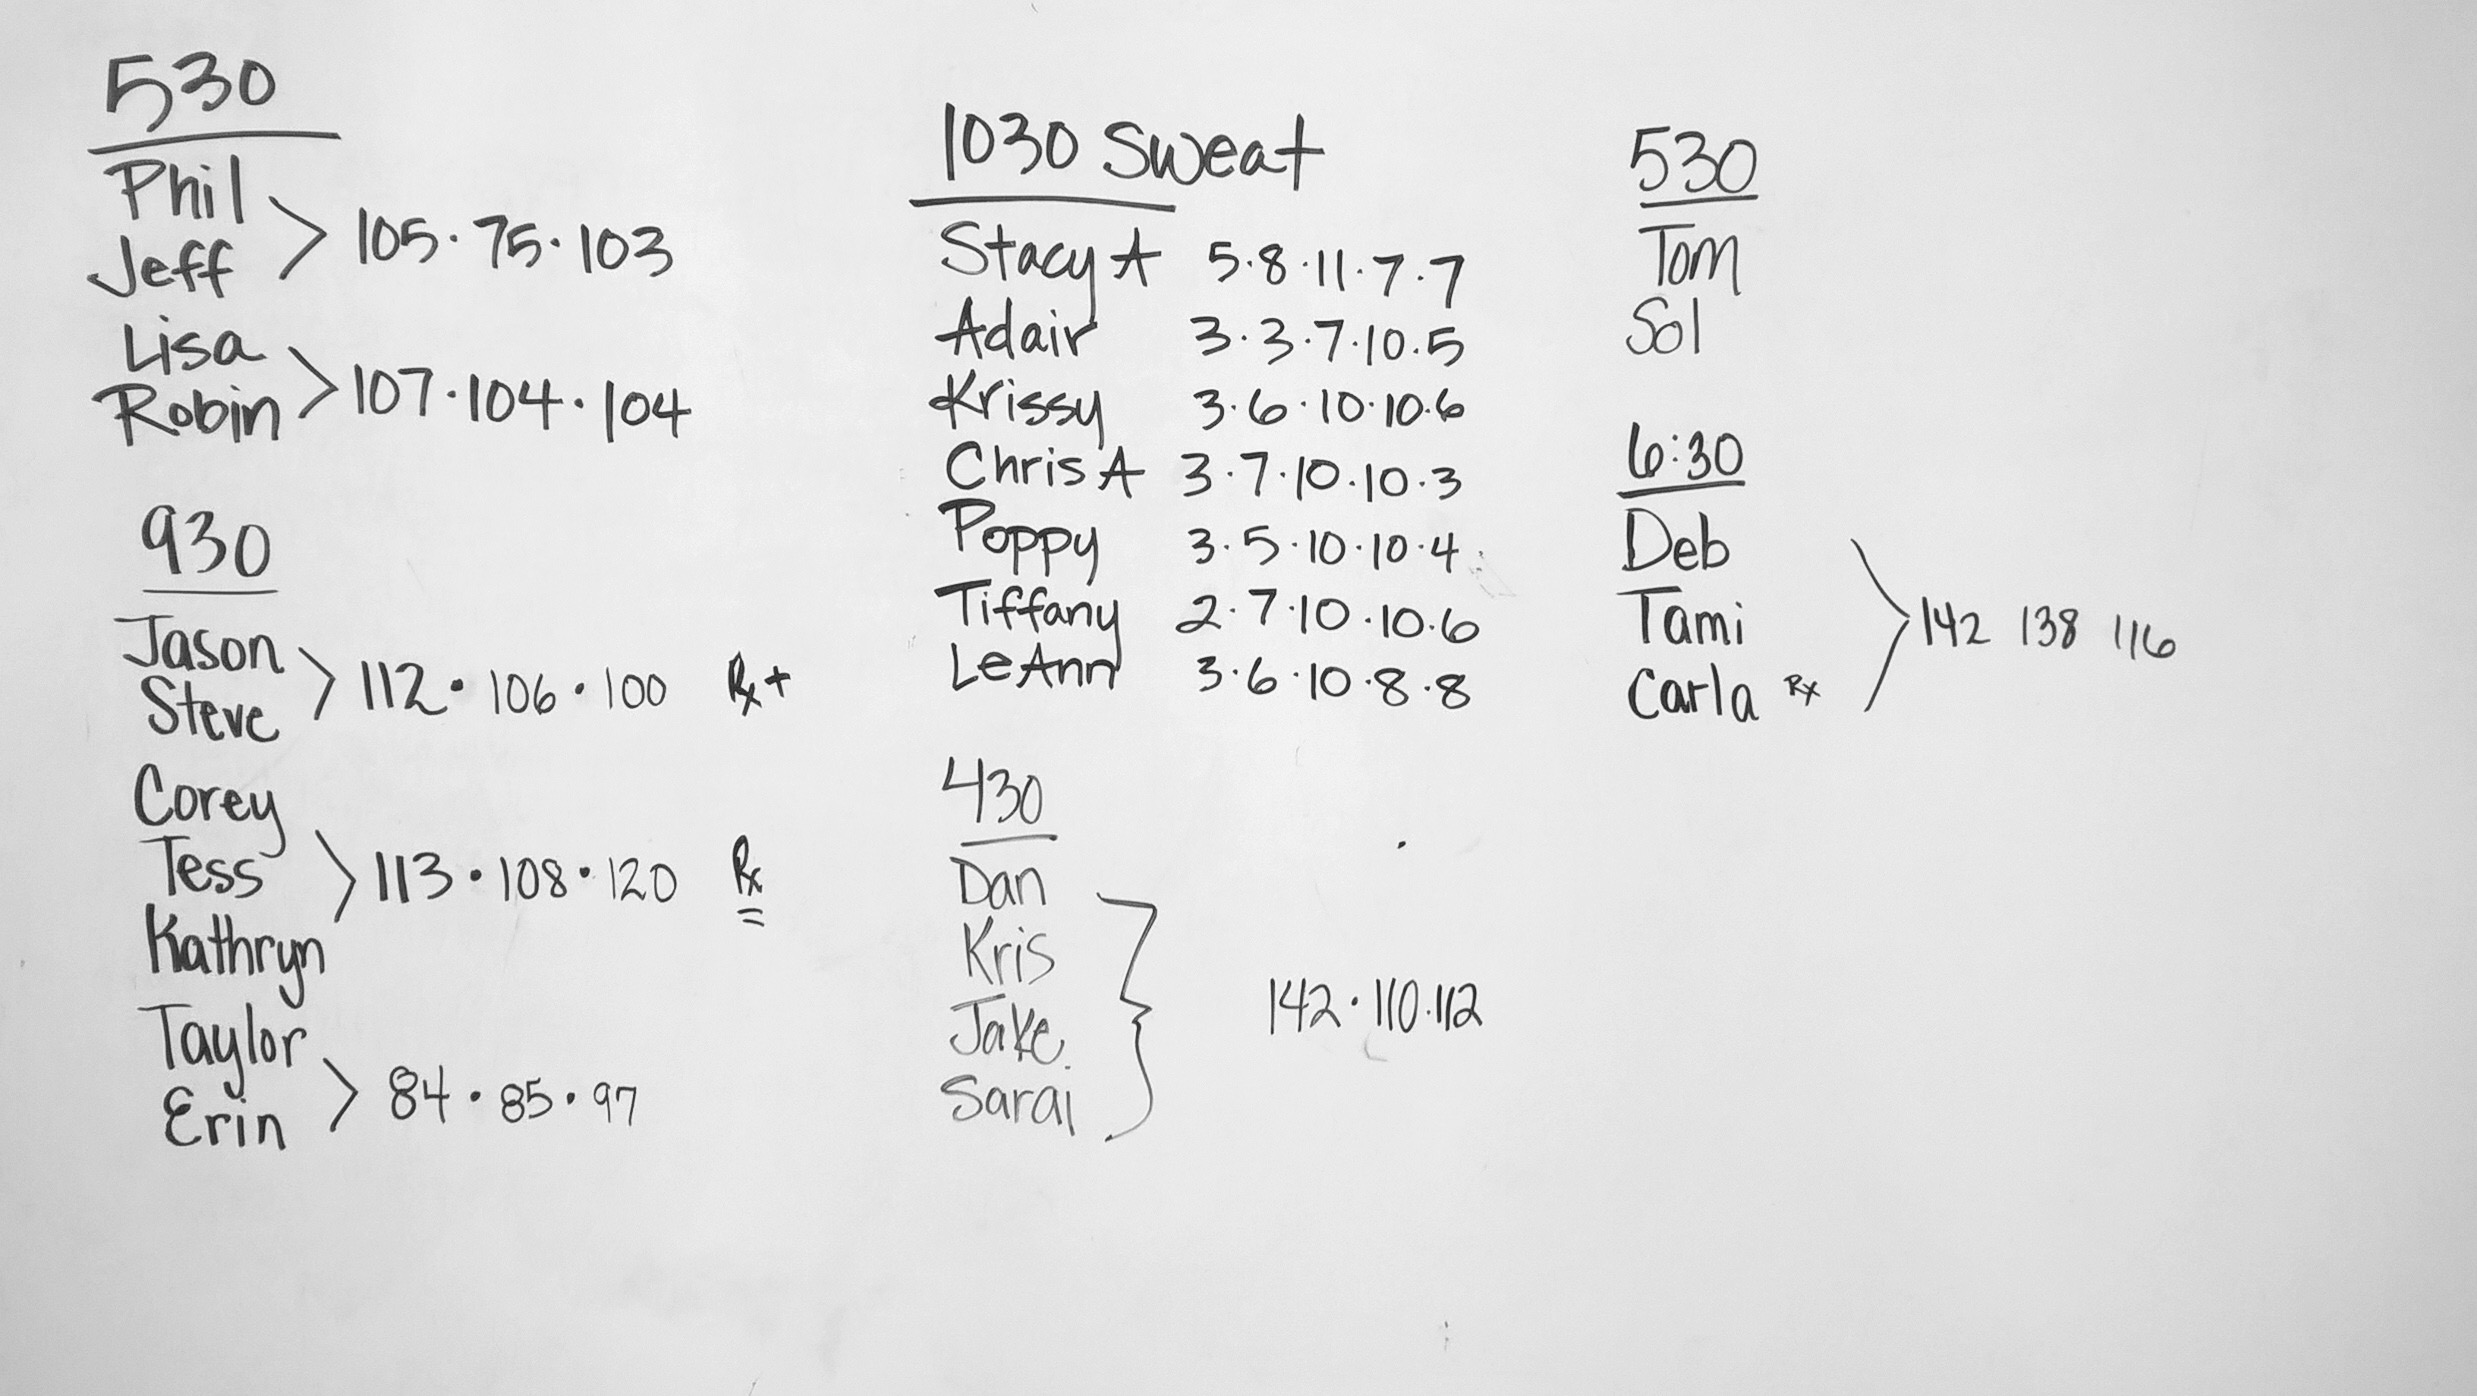 530
Phil
Jeff > 105·75·103
Lisa
Robin > 107·104·104
930
Jason
Steve > 112·106·100 Rx+
Corey
Tess > 113·108·120 Rx
Kathryn
Taylor
Erin > 84·85·97
1030 Sweat
Stacy A 5·8·11·7·7
Adair 3·3·7·10·5
Krissy 3·6·10·10·6
Chris A 3·7·10·10·3
Poppy 3·5·10·10·4
Tiffany 2·7·10·10·6
LeAnn 3·6·10·8·8
430
Dan
Kris
Jake
Sarai
142·110·112
530
Tom
Sol
6:30
Deb
Tami 142 138 116
Carla Rx